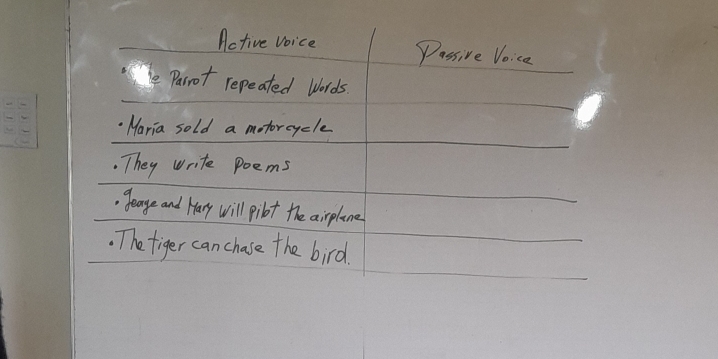 Active Voice
Passive Voice
• The Parrot repeated Words.
• Maria sold a motorcycle
• They write poems
• George and Mary will pilot the airplane
• The tiger can chase the bird.